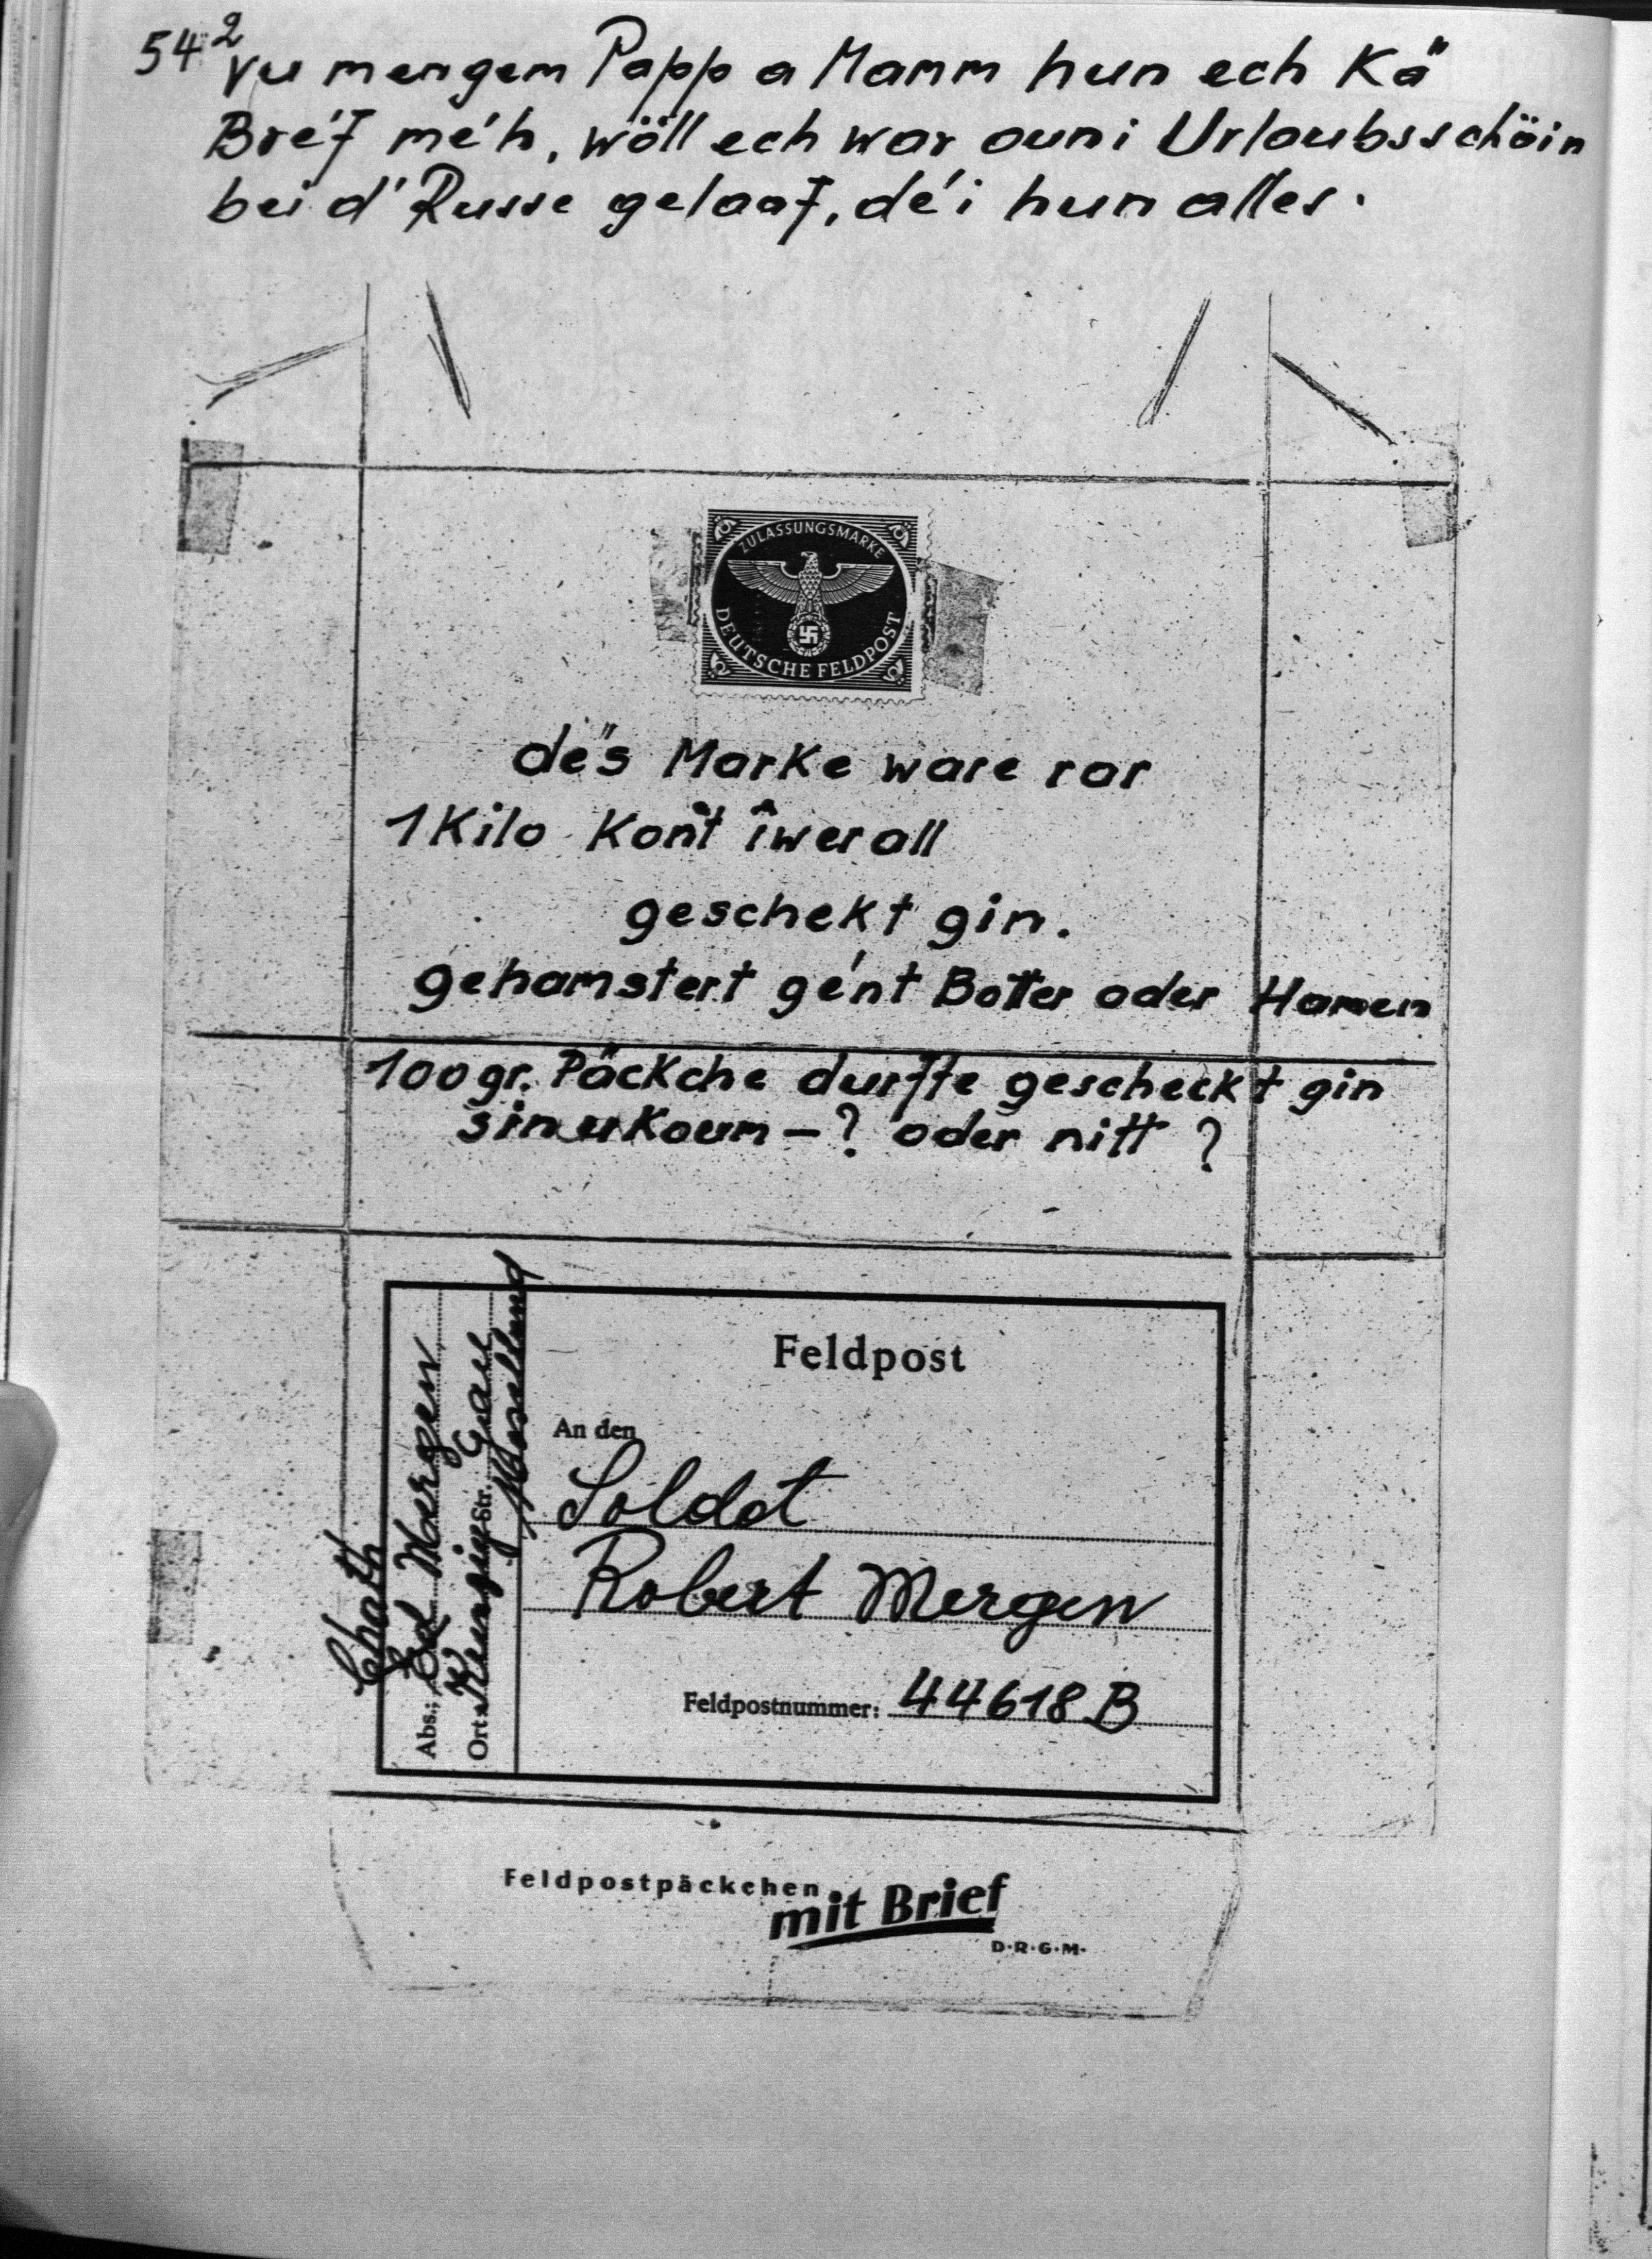 54²
Vu mengem Papp a Mamm hun ech Kä
Bréf méh, wöll ech war ouni Urlaubsschäin
bei d'Russe gelaaf, déi hun alles.
ZULASSUNGSMARKE
DEUTSCHE FELDPOST
dës Marke ware rar
1 Kilo Kont îwerall
geschekt gin.
gehamstert gént Botter oder Hamen
100 gr. Päckche durfte gescheckt gin
sin ukoum – ? oder nitt ?
Feldpost
An den
Soldat
Robert Mergen
Feldpostnummer: 44618 B
Abs.: Ed Mergen
Ort: Str. Gau
Moselland
Feldpostpäckchen
mit Brief
D·R·G·M·